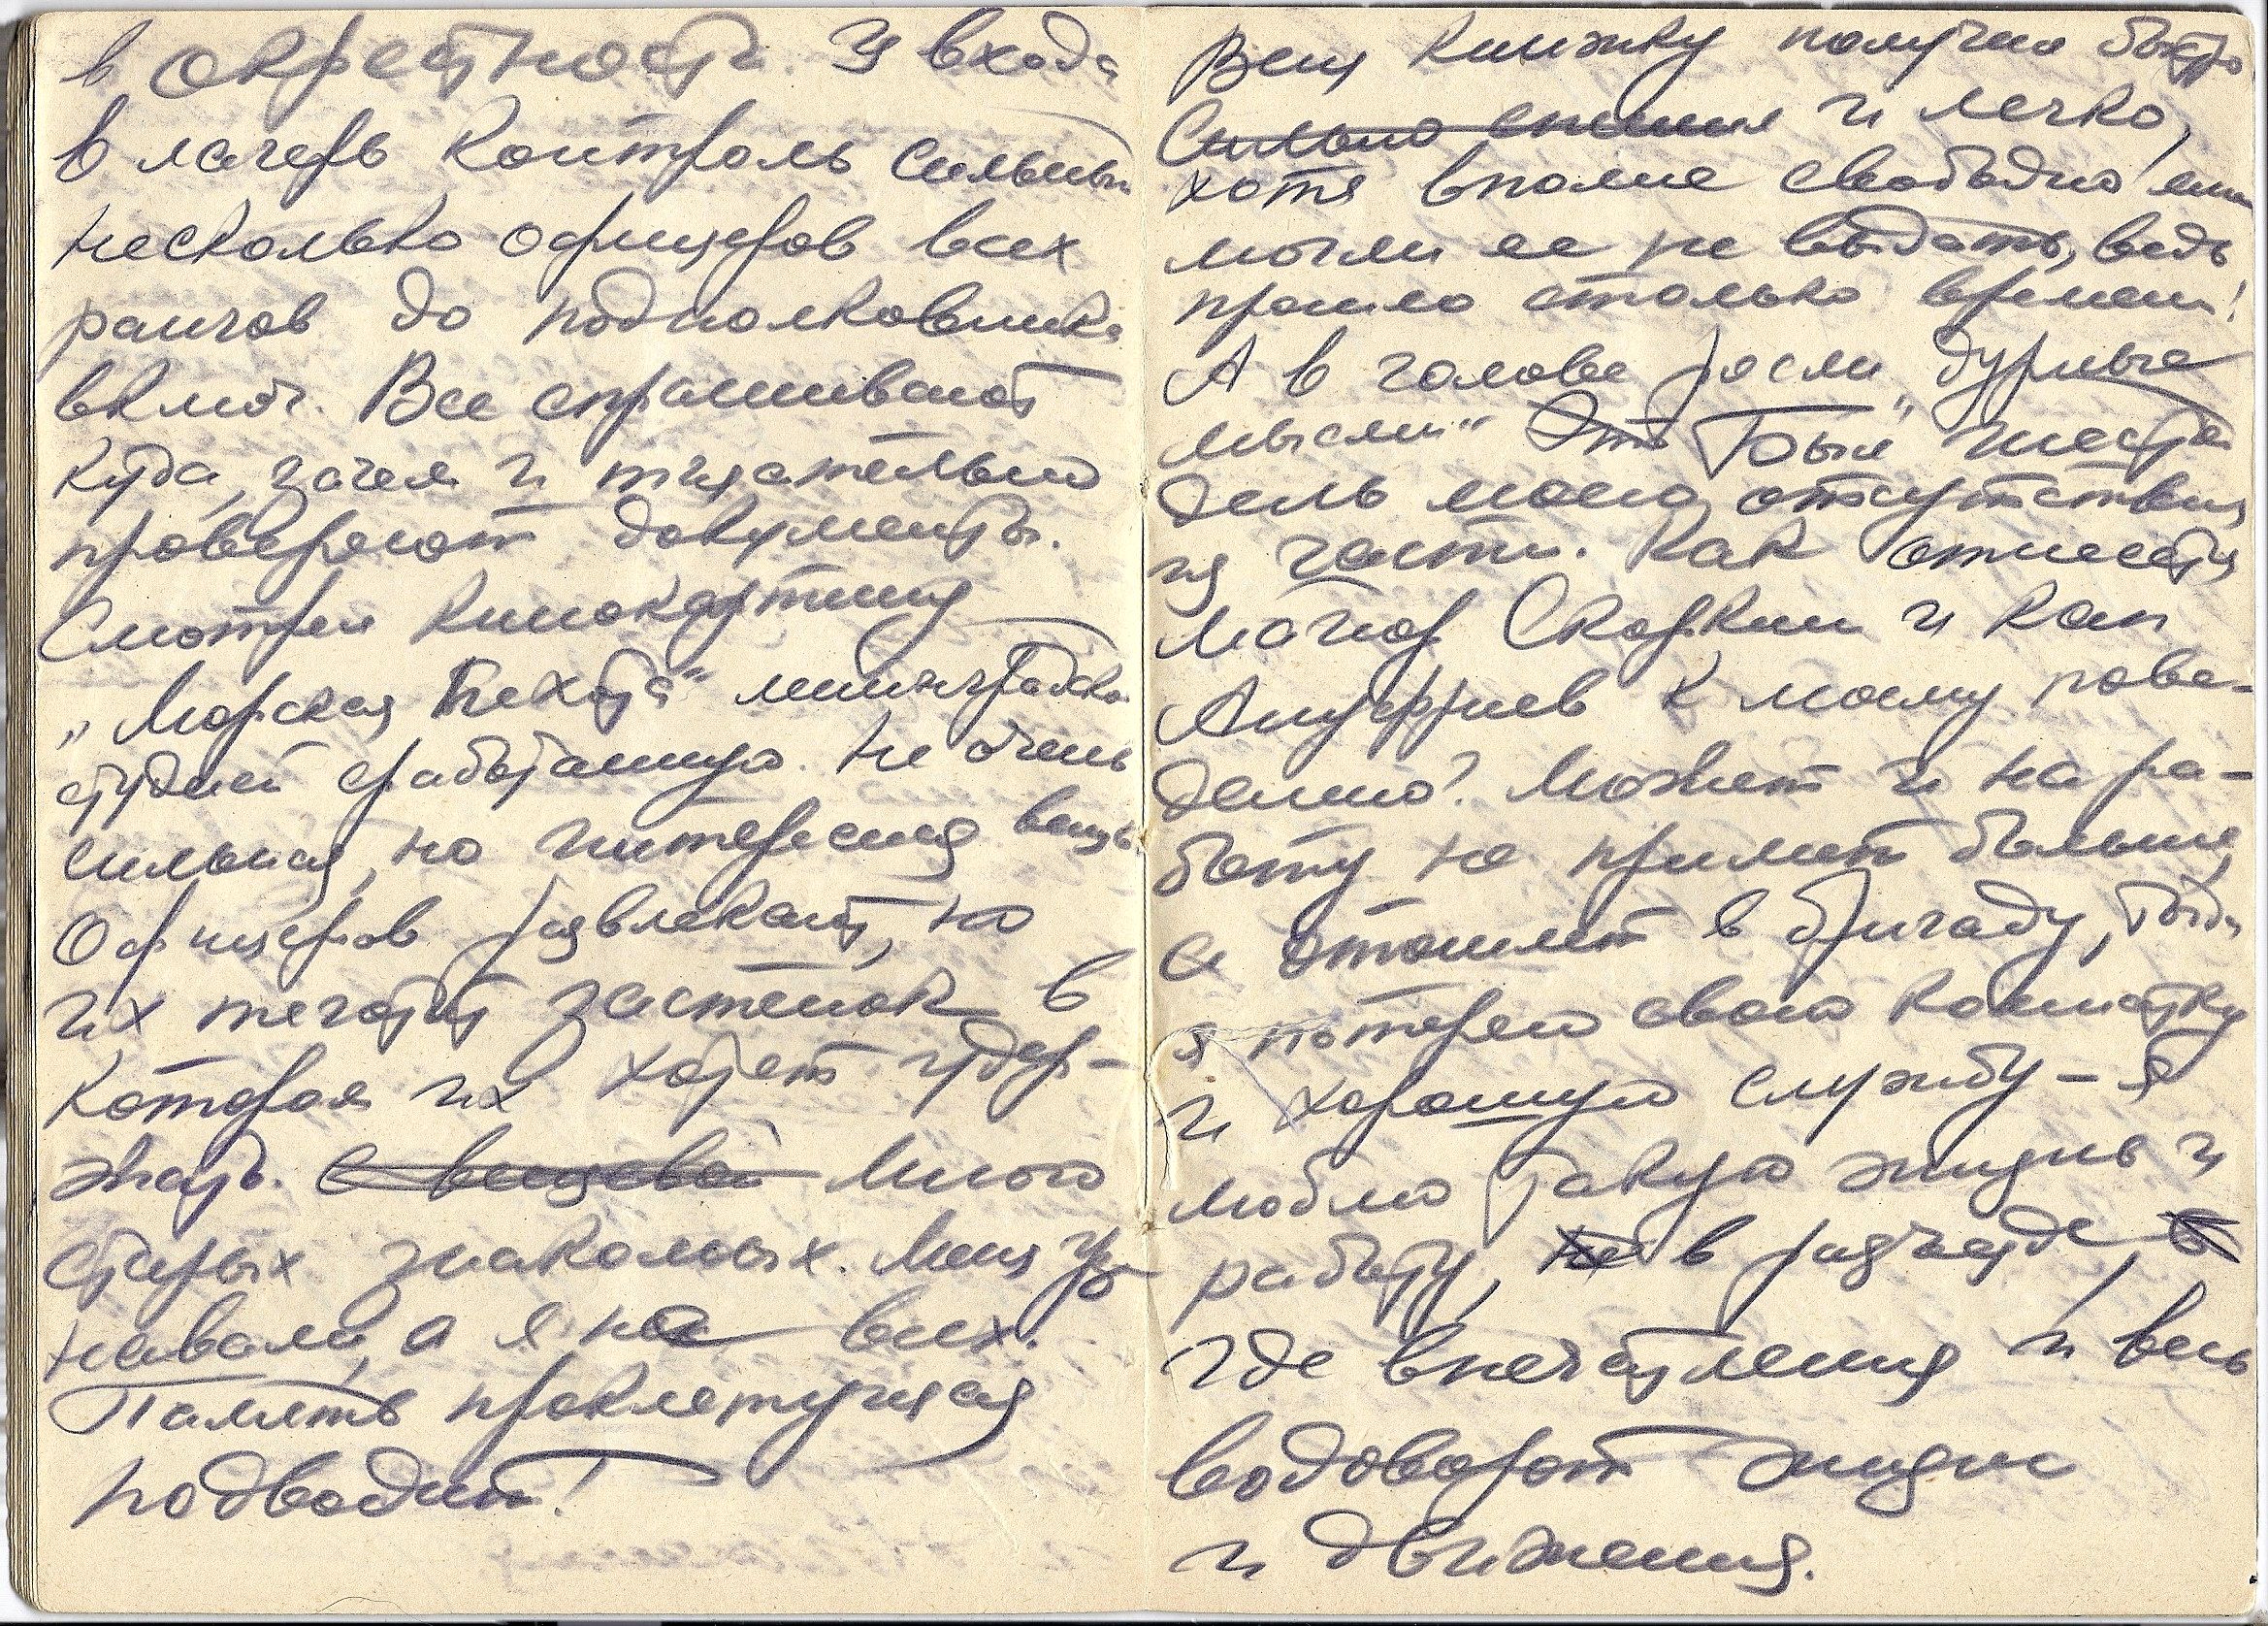 в окрестность. У входа
в лагерь контроль сильный
несколько офицеров всех
рангов до подполковника
включ. Все спрашивают
куда, зачем и тщательно
проверяют документы.
Смотрел кинокартину
„Морская пехота" ленинградской
студией сработанную. Не очень
сильная, но интересная вещь.
Офицеров развлекают, но
их тяготит застенок в
котором их хотят удер-
жать. С вещевой Много
старых знакомых. Меня уз-
навали, а я не всех.
Память проклятущая
подводит!
Вещ книжку получил быстро
Сильно и легко,
хотя вполне свободно
могли ее не выдать, ведь
прошло столько времени!
А в голове росли „дурные
мысли" Это Был шестой
день моего отсутствия
из части. Как отнесутся
майор Скоркин и кап
Ануфриев к моему пове-
дению? Может и на ра-
боту не примет больше,
а отошлет в бригаду, тогда
я потеряю свою комнатку
и хорошую службу – я
люблю такую жизнь и
работу, не в разъезде,
где впечатления и весь
водоворот жизни
и движения.